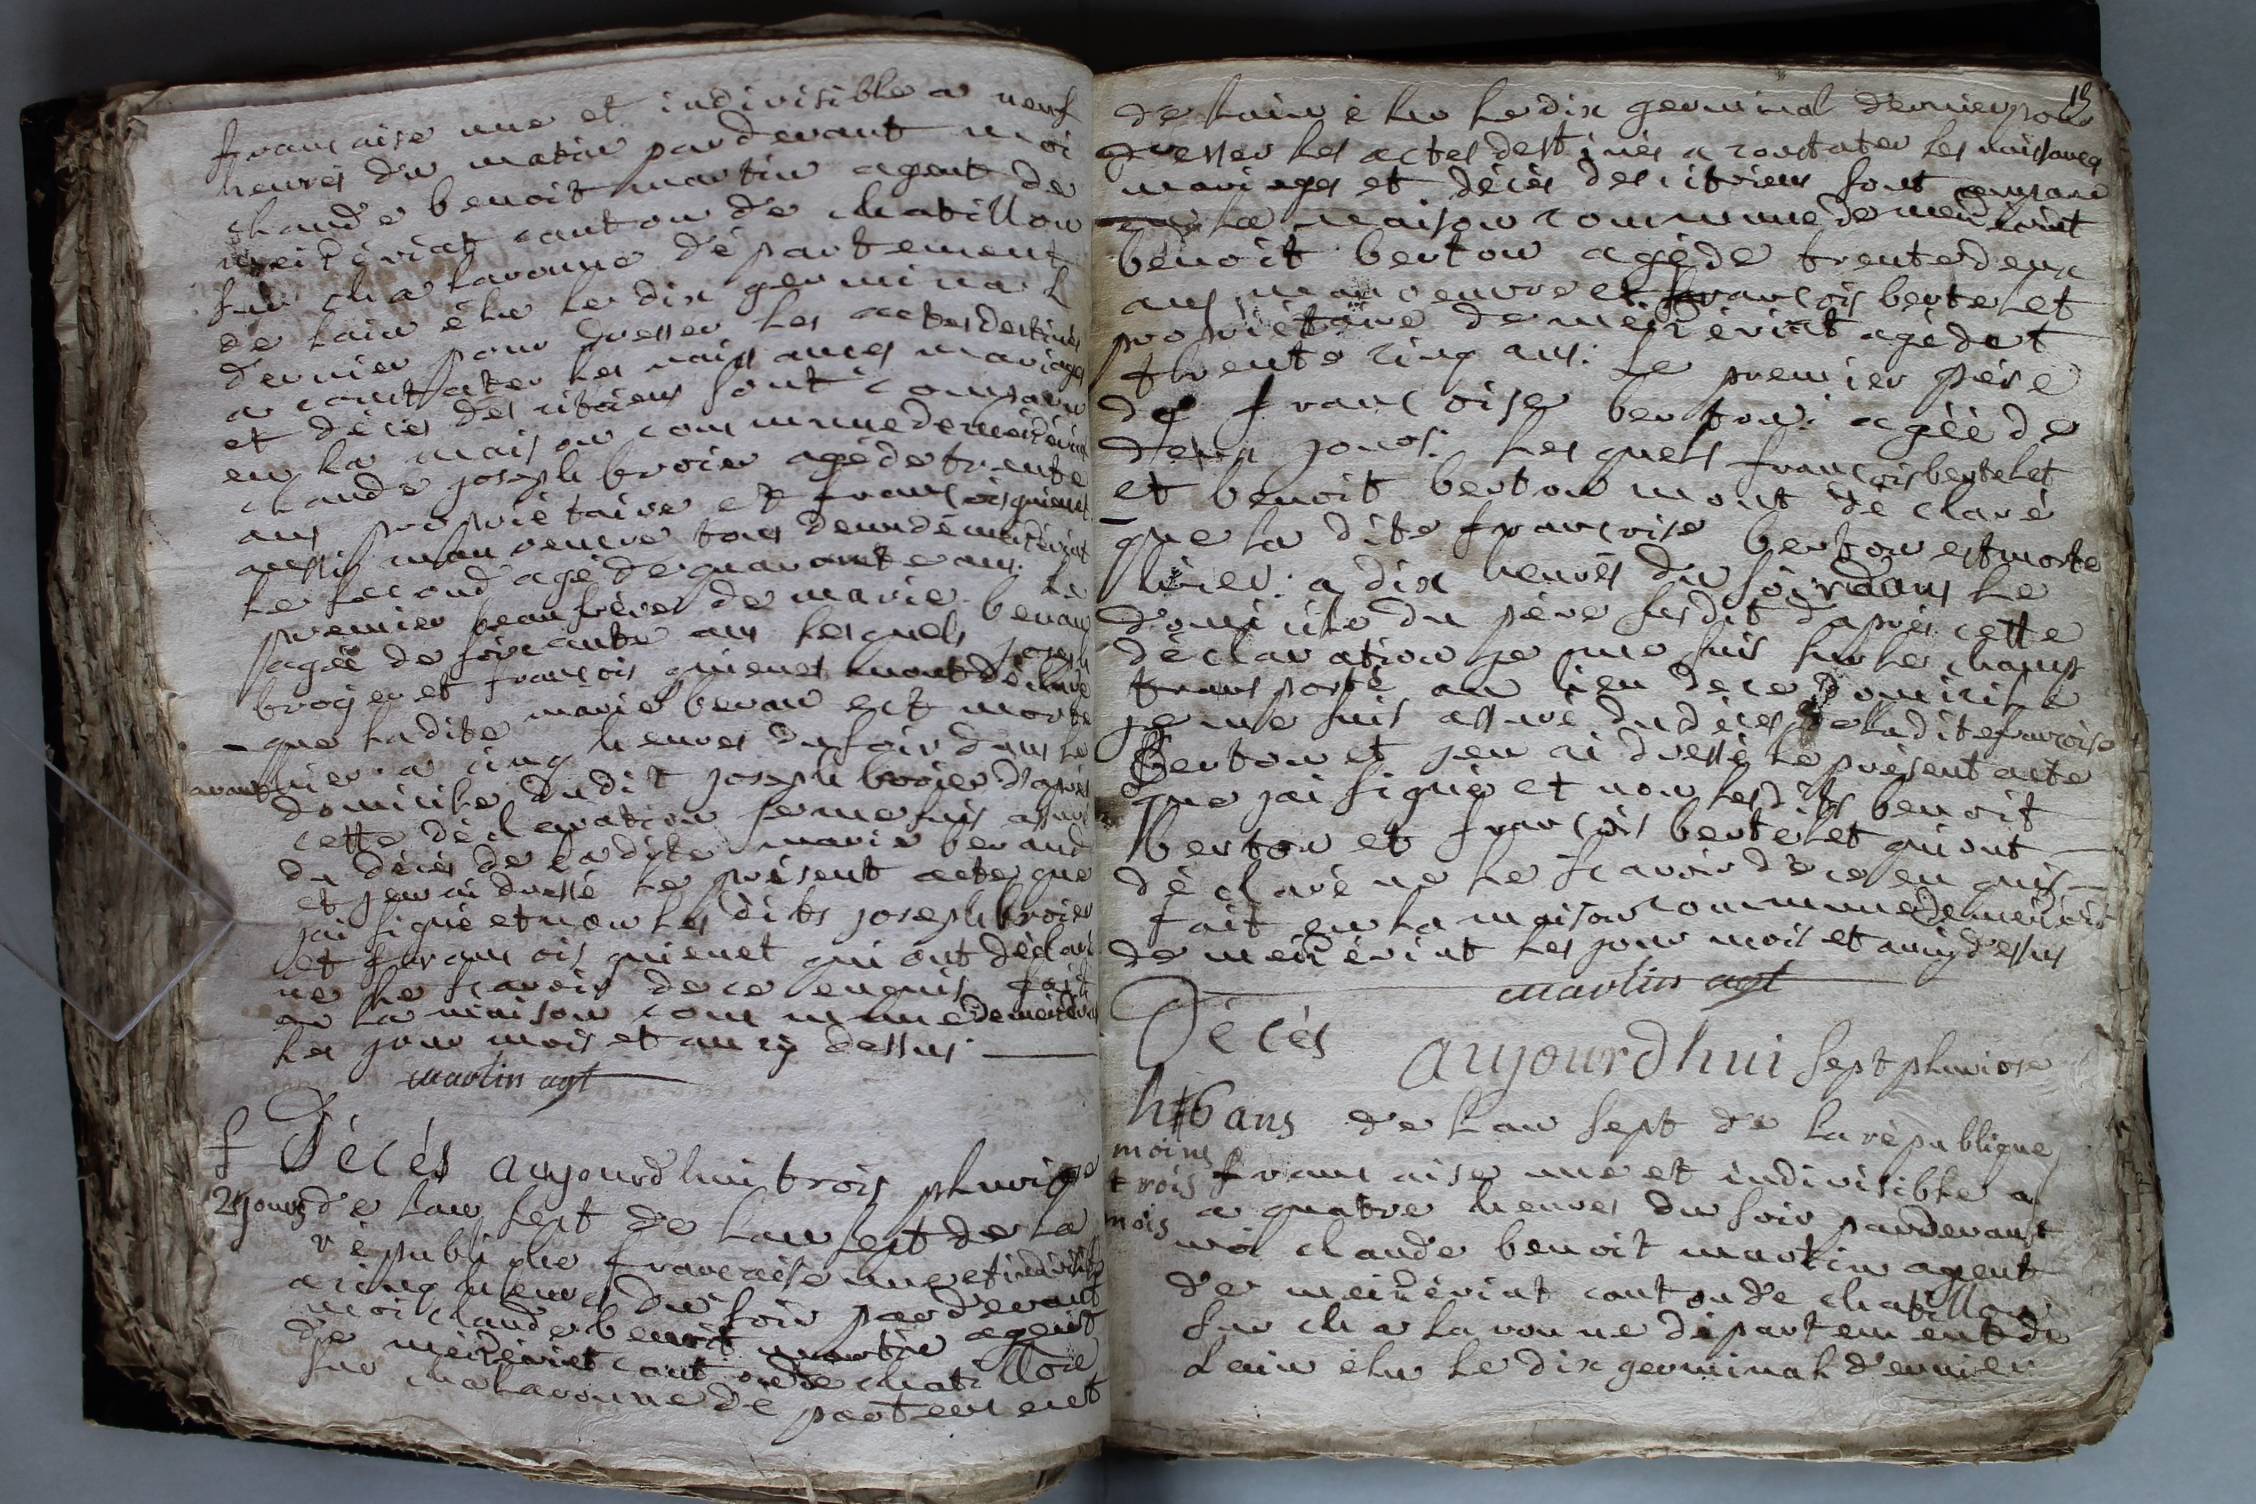 française une et indivisible a neuf
heures du matin pardevant moi
claude benoit martin agent de
meizériat canton de chatillon
sur chalaronne département
de lain élu le dix germinal
dernier pour dresser les actes destinés
a constater les naissances mariages
et décès des citoiens sont comparu
en la maison commune de meizériat
claude joseph broier agé de trente
ans propriétaire et françois guienet
aussi manoeuvre tous deux de meizériat
le second agé de quarante ans. le
premier beaufrère de marie beraud
agée de soixante ans lesquels joseph
broyer et françois guienet mont déclaré
que ladite marie beraud est morte
avant hier a cinq heures du soir dans le
domicile dudit joseph broier d'après
cette déclaration je me suis assuré
du décès de ladite marie beraud
et jen ai dressé le présent acte que
jai signé et non les dits joseph broier
et françois guienet qui ont déclaré
ne le scavoir de ce enquis fait
en la maison commune de meizériat
les jour mois et an cy dessus
martin agt
f Décès aujourdhui trois pluviose
2 jours de lan sept de lan sept de la
républiche française une et indivisible
a cinq heures du soir pardevant
moi claude benoit martin agent
de meizériat canton de chatillon
sur chalaronne département
15
de lain élu le dix germinal dernier pour
dresser les actes destinés a constater les naissances
mariages et décès des citoiens sont comparu
en la maison commune de meizériat
benoit berton agé de trente deux
ans manoeuvre et françois bertelet
propriétaire de meizériat agé de
trente cinq ans. le premier père
de françoise berton agée de
deux jours. lesquels françois bertelet
et benoit berton mont déclaré
que la dite françoise berton est morte
hier a dix heures du soir dans le
domicile du père susdit d'après cette
déclaration je me suis sur le champ
transporté au lieu de ce domicile
je me suis assuré du décès de ladite françoise
Berton et jen ai dressé le présent acte
que jai signé et non lesdits benoit
berton et françois bertelet qui ont
déclaré ne le scavoir de ce enquis
fait en la maison commune de meizériat
de meizériat les jour mois et an cy dessus
martin agt
Décès aujourdhui sept pluviose
h 6 ans de lan sept de la république
moins
trois française une et indivisible a
mois a quatre heures du soir pardevant
moi claude benoit martin agent
de meizériat canton de chatillon
sur chalaronne département de
Lain élu le dix germinal dernier